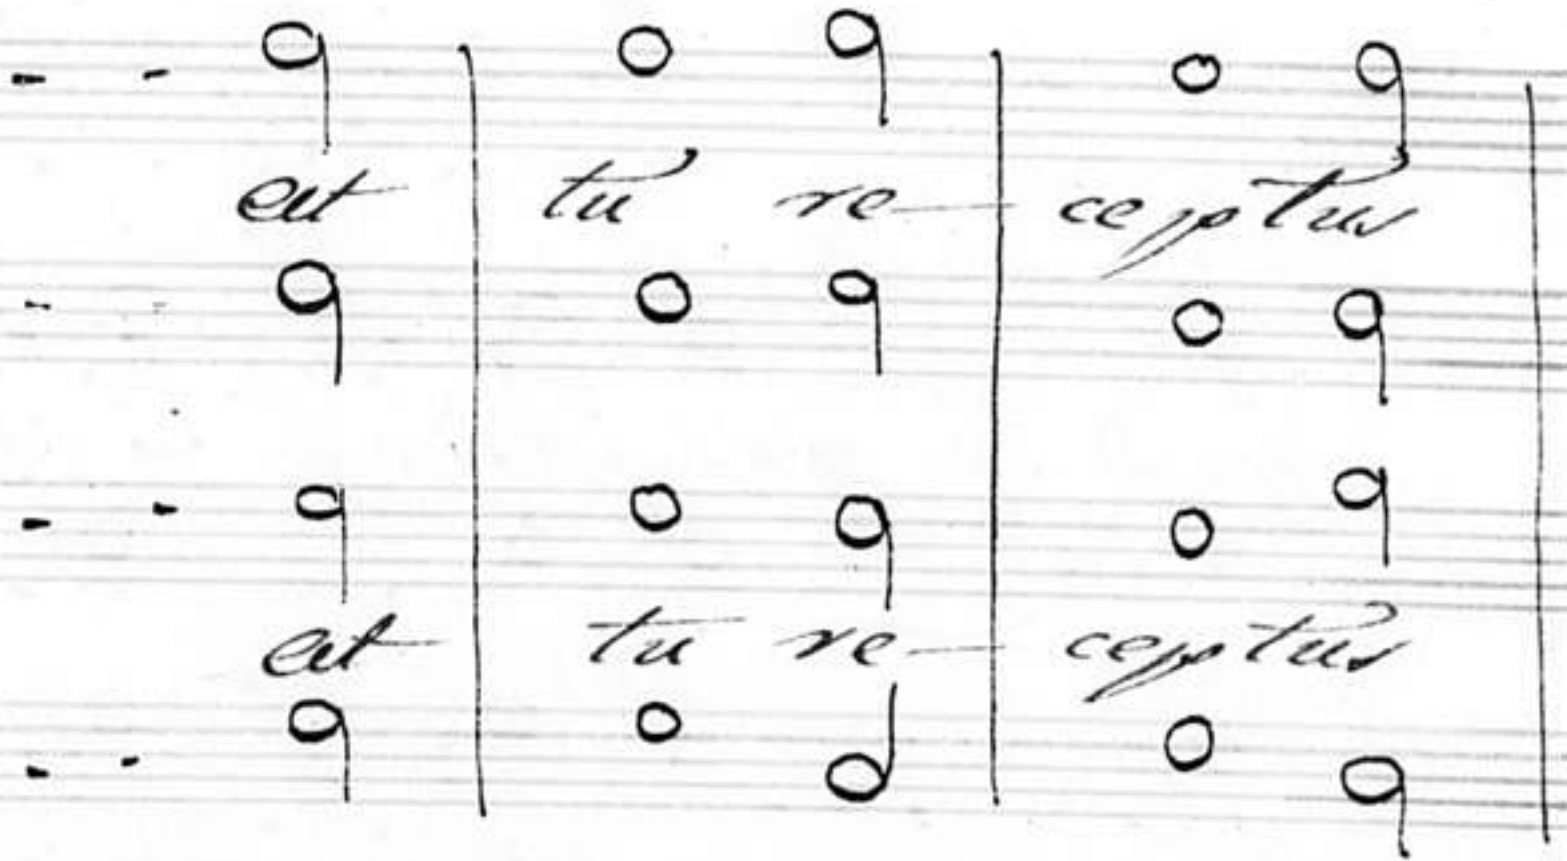 est tu re— ceptus
est tu re— ceptus